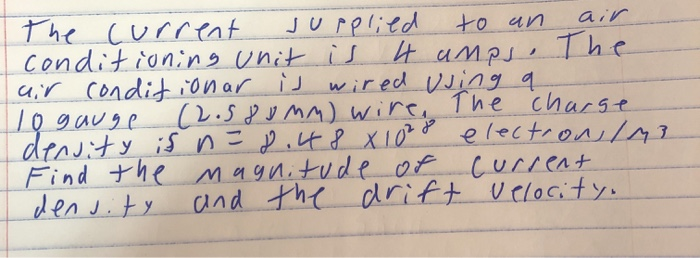 The current supplied to an air
conditioning unit is 4 amps. The
air conditionar is wired using a
10 gauge (2.588mm) wire. The charge
density is n = 8.48 x10²⁸ electrons/m³
Find the magnitude of current
density and the drift velocity.